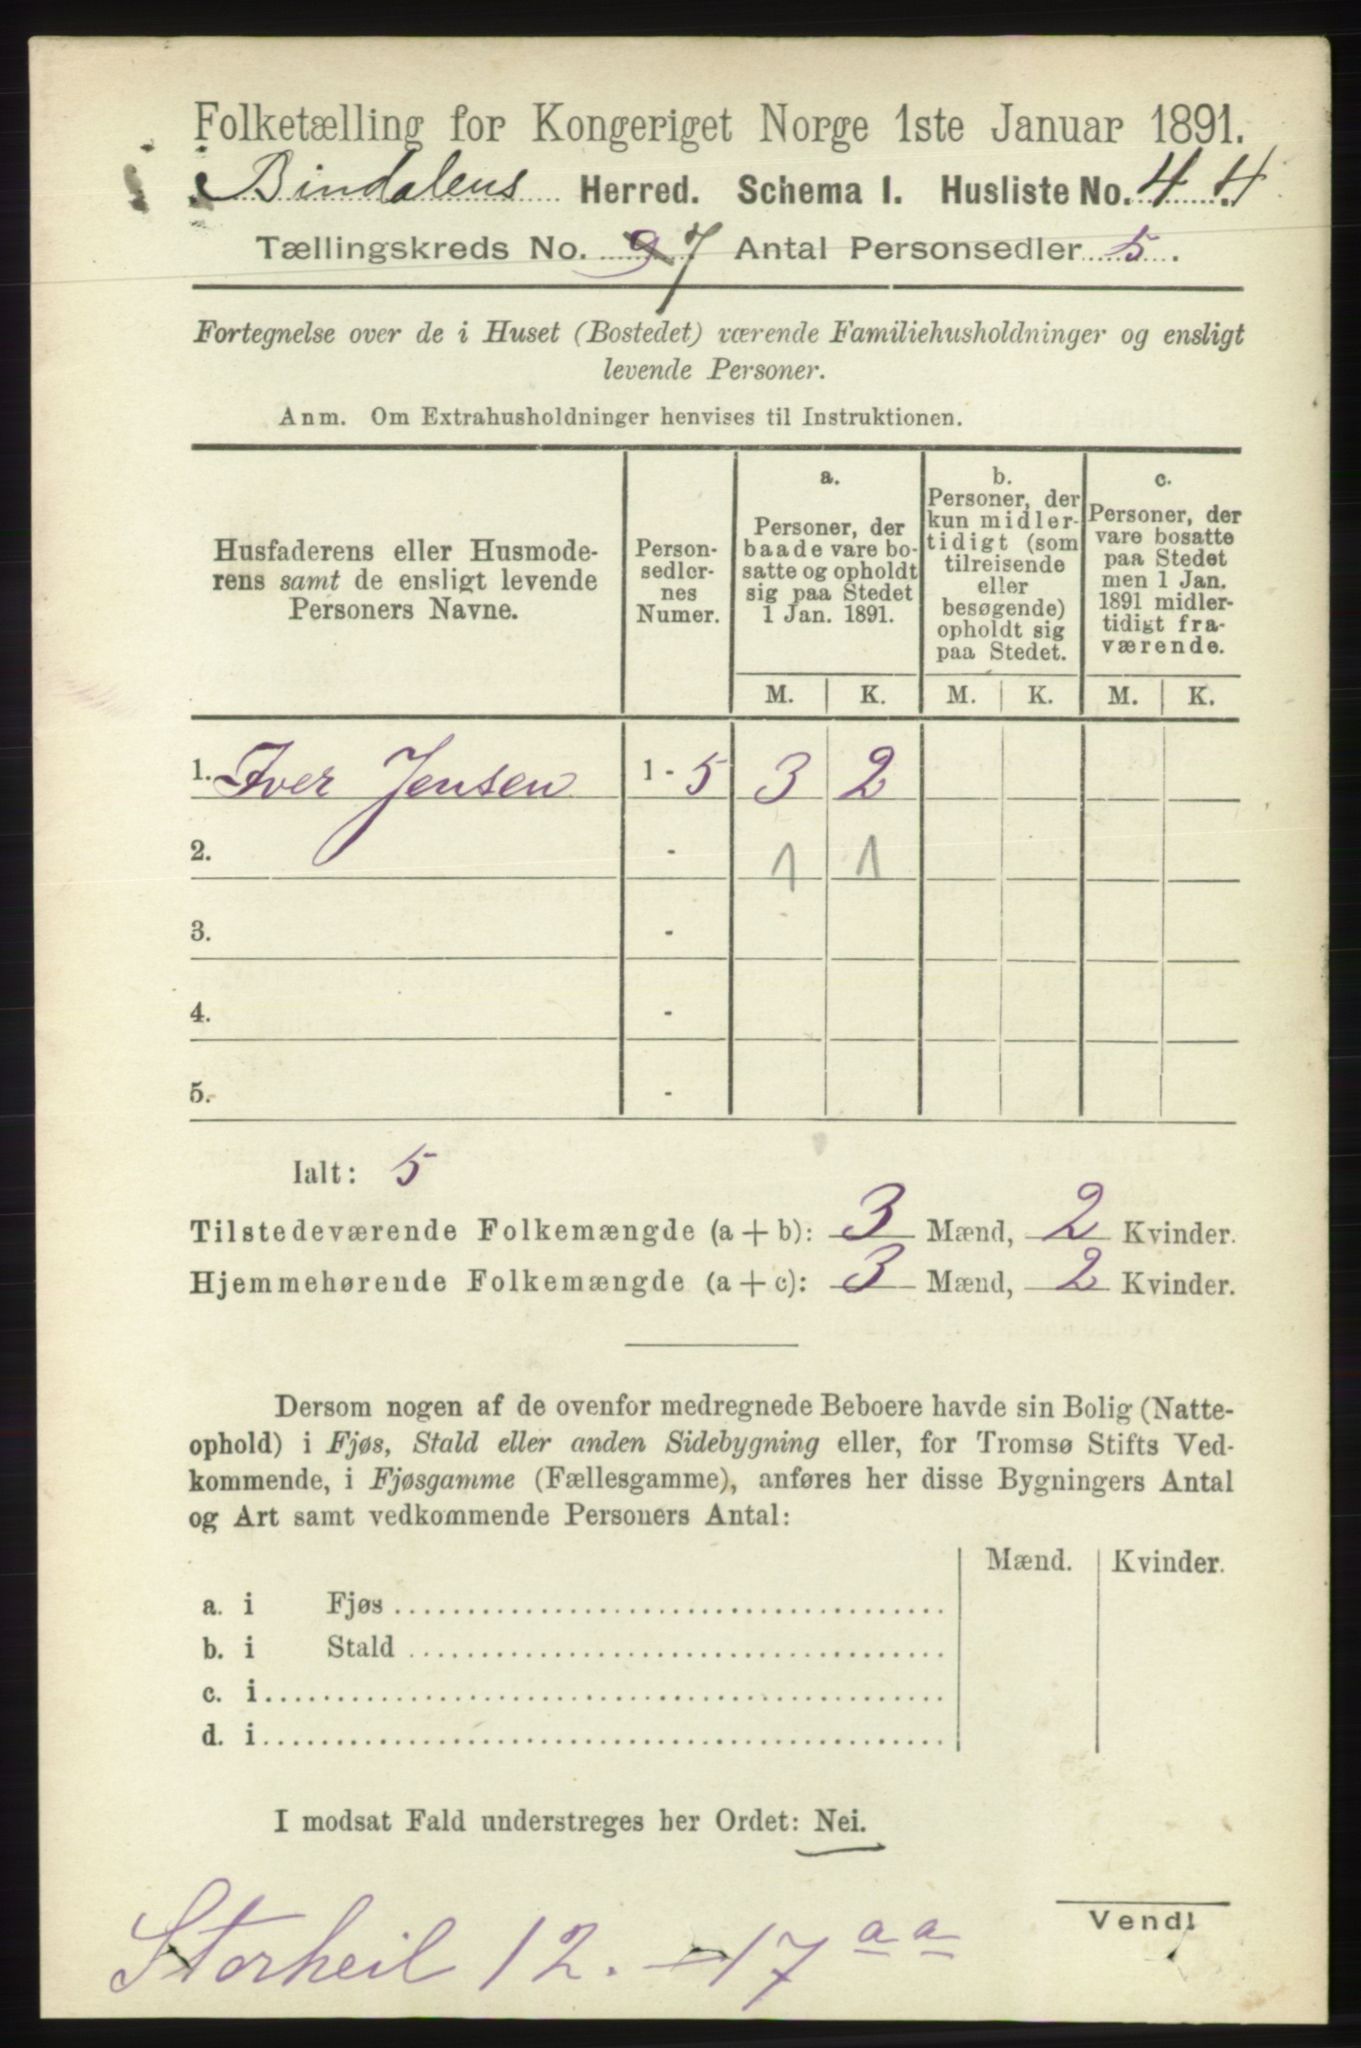 Folketælling for Kongeriget Norge 1ste Januar 1891.
Bindalens Herred. Schema I. Husliste No. 44
Tællingskreds No. 9 7 Antal Personsedler 5.
Fortegnelse over de i Huset (Bostedet) værende Familiehusholdninger og ensligt
levende Personer.
Anm. Om Extrahusholdninger henvises til Instruktionen.
Husfaderens eller Husmode-
rens samt de ensligt levende
Personers Navne.
Person-
sedler-
nes
Numer.
a.
Personer, der
baade vare bo-
satte og opholdt
sig paa Stedet
1 Jan. 1891.
b.
Personer, der
kun midler-
tidigt (som
tilreisende
eller
besøgende)
opholdt sig
paa Stedet.
c.
Personer, der
vare bosatte
paa Stedet
men 1 Jan.
1891 midler-
tidigt fra-
værende.
M. K. M. K. M. K.
1. Iver Jensen 1 - 5 3 2
2. - 1 1
3. -
4. -
5. -
Ialt: 5
Tilstedeværende Folkemængde (a + b): 3 Mænd, 2 Kvinder.
Hjemmehørende Folkemængde (a + c): 3 Mænd, 2 Kvinder.
Dersom nogen af de ovenfor medregnede Beboere havde sin Bolig (Natte-
ophold) i Fjøs, Stald eller anden Sidebygning eller, for Tromsø Stifts Ved-
kommende, i Fjøsgamme (Fællesgamme), anføres her disse Bygningers Antal
og Art samt vedkommende Personers Antal:
Mænd. Kvinder.
a. i Fjøs
b. i Stald
c. i
d. i
I modsat Fald understreges her Ordet: Nei.
Vend!
Storheil 12. - 17 aa